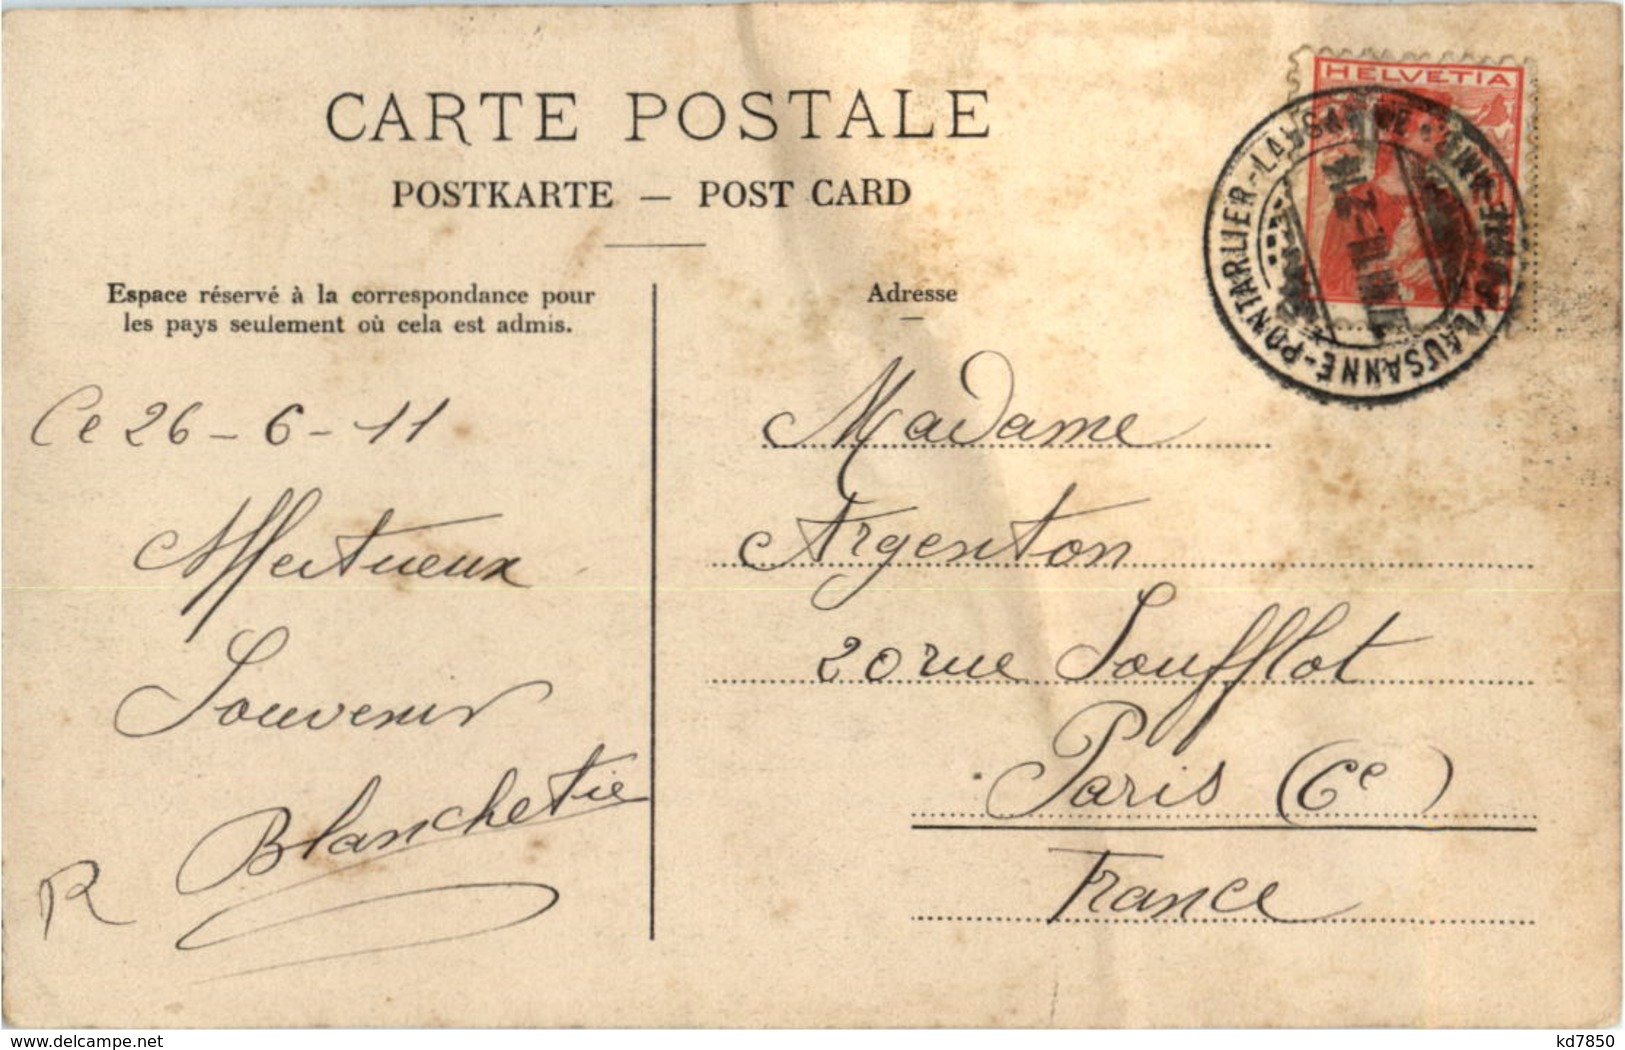 CARTE POSTALE
POSTKARTE — POST CARD
HELVETIA
LAUSANNE-PONTARLIER-LAUSANNE
Espace réservé à la correspondance pour
les pays seulement où cela est admis.
Adresse
Ce 26-6-11
Affectueux
Souvenir
Blanchetie
R
Madame
Argenton
20 rue Soufflot
Paris (6e)
France
delcampe.net
kd7850